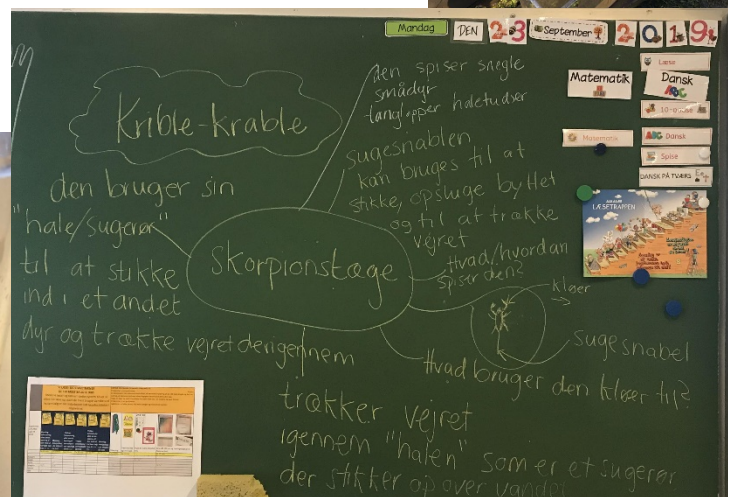 Mandag DEN 23 September 2019
Læse
Matematik
Dansk
ABC
Matematik
ABC Dansk
Spise
DANSK PÅ TVÆRS
LÆSETRAPPEN
Krible-krable
den spiser snegle
smådyr
tanglopper haletudser
sugesnablen
kan bruges til at
stikke, opsluge byttet
og til at trække
vejret
Hvad/hvordan
spiser den?
kløer
sugesnabel
Hvad bruger den kløer til?
Skorpionstæge
den bruger sin
"hale/sugerør"
til at stikke
ind i et andet
dyr og trække vejret derigennem
trækker vejret
igennem "halen" som er et sugerør
der stikker op over vandet